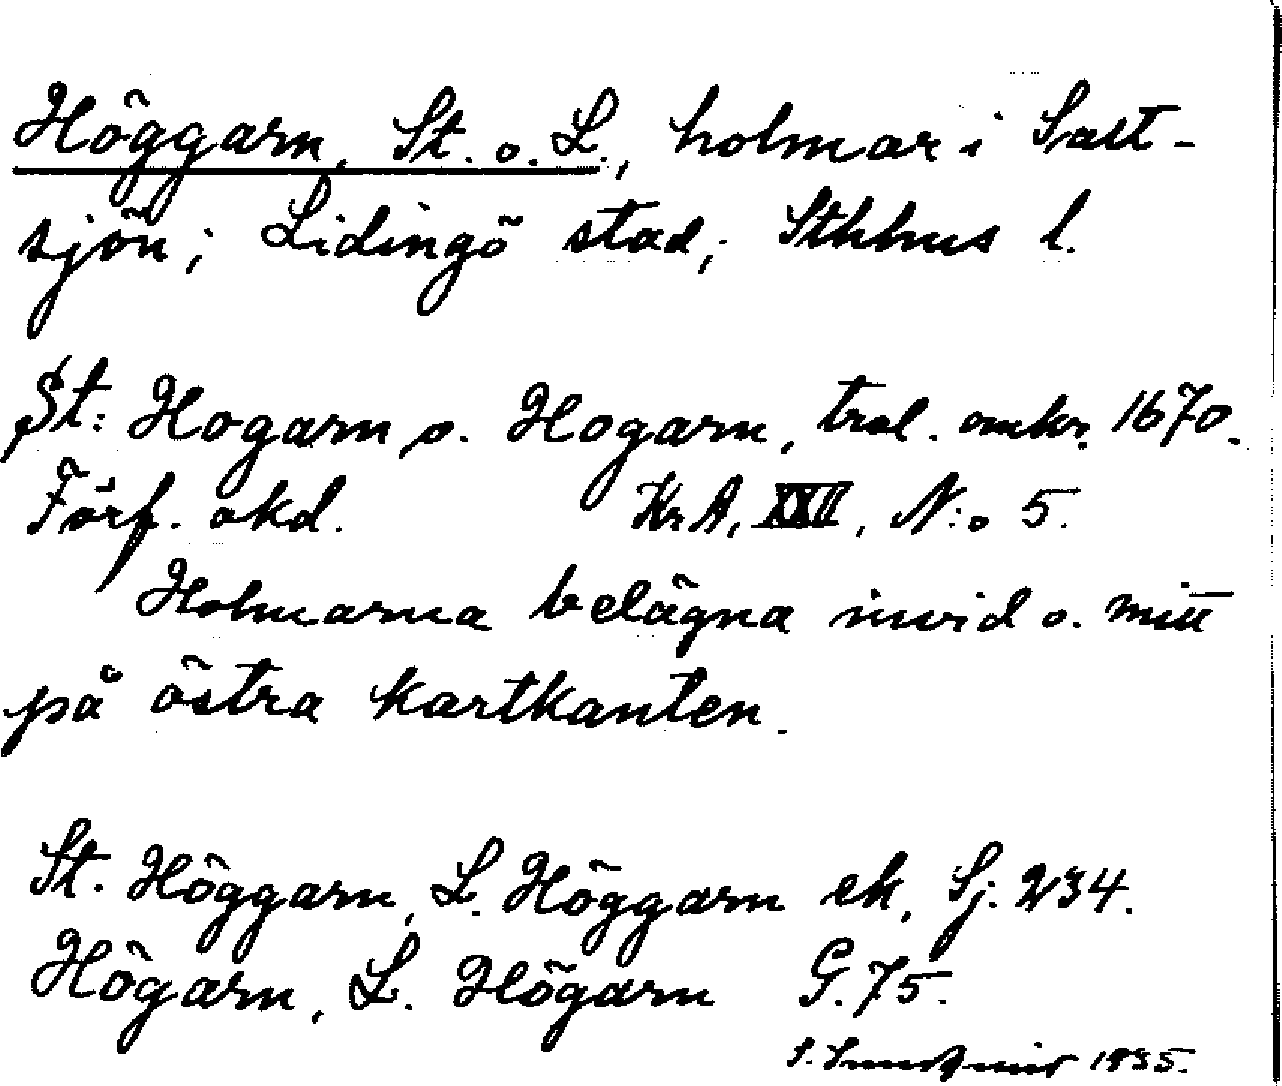 Höggarn, St. o. L., holmar i Salt-
sjön; Lidingö stad; Sthlms l.
St: Hogarn o. Hogarn, trol. omkr. 1670.
Förf. okd. Kr A, XXII, N:o 5.
Holmarna belägna invid o. mitt
på östra kartkanten.
St. Höggarn, L. Höggarn ek, Sj. 234.
Högarn, L. Högarn G. 75.
S. 1935.